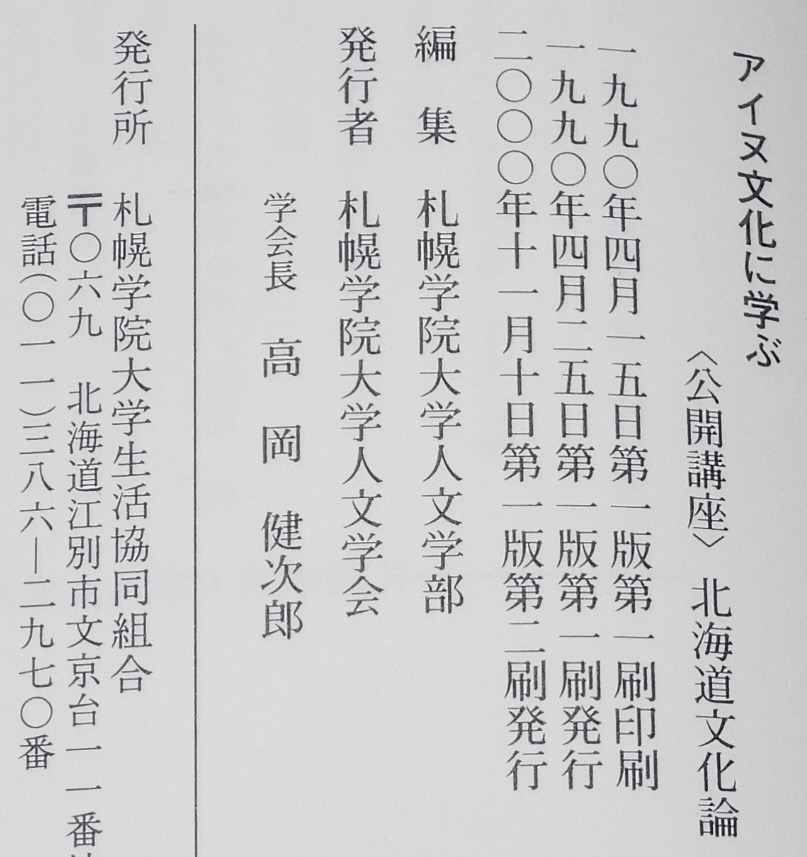 アイヌ文化に学ぶ
〈公開講座〉 北海道文化論
一九九〇年四月一五日第一版第一刷印刷
一九九〇年四月二五日第一版第一刷発行
二〇〇〇年十一月十日第一版第二刷発行
編 集 札幌学院大学人文学部
発行者 札幌学院大学人文学会
学会長 高 岡 健次郎
発行所 札幌学院大学生活協同組合
〒〇六九 北海道江別市文京台一一番
電話(〇一一)三八六―二九七〇番